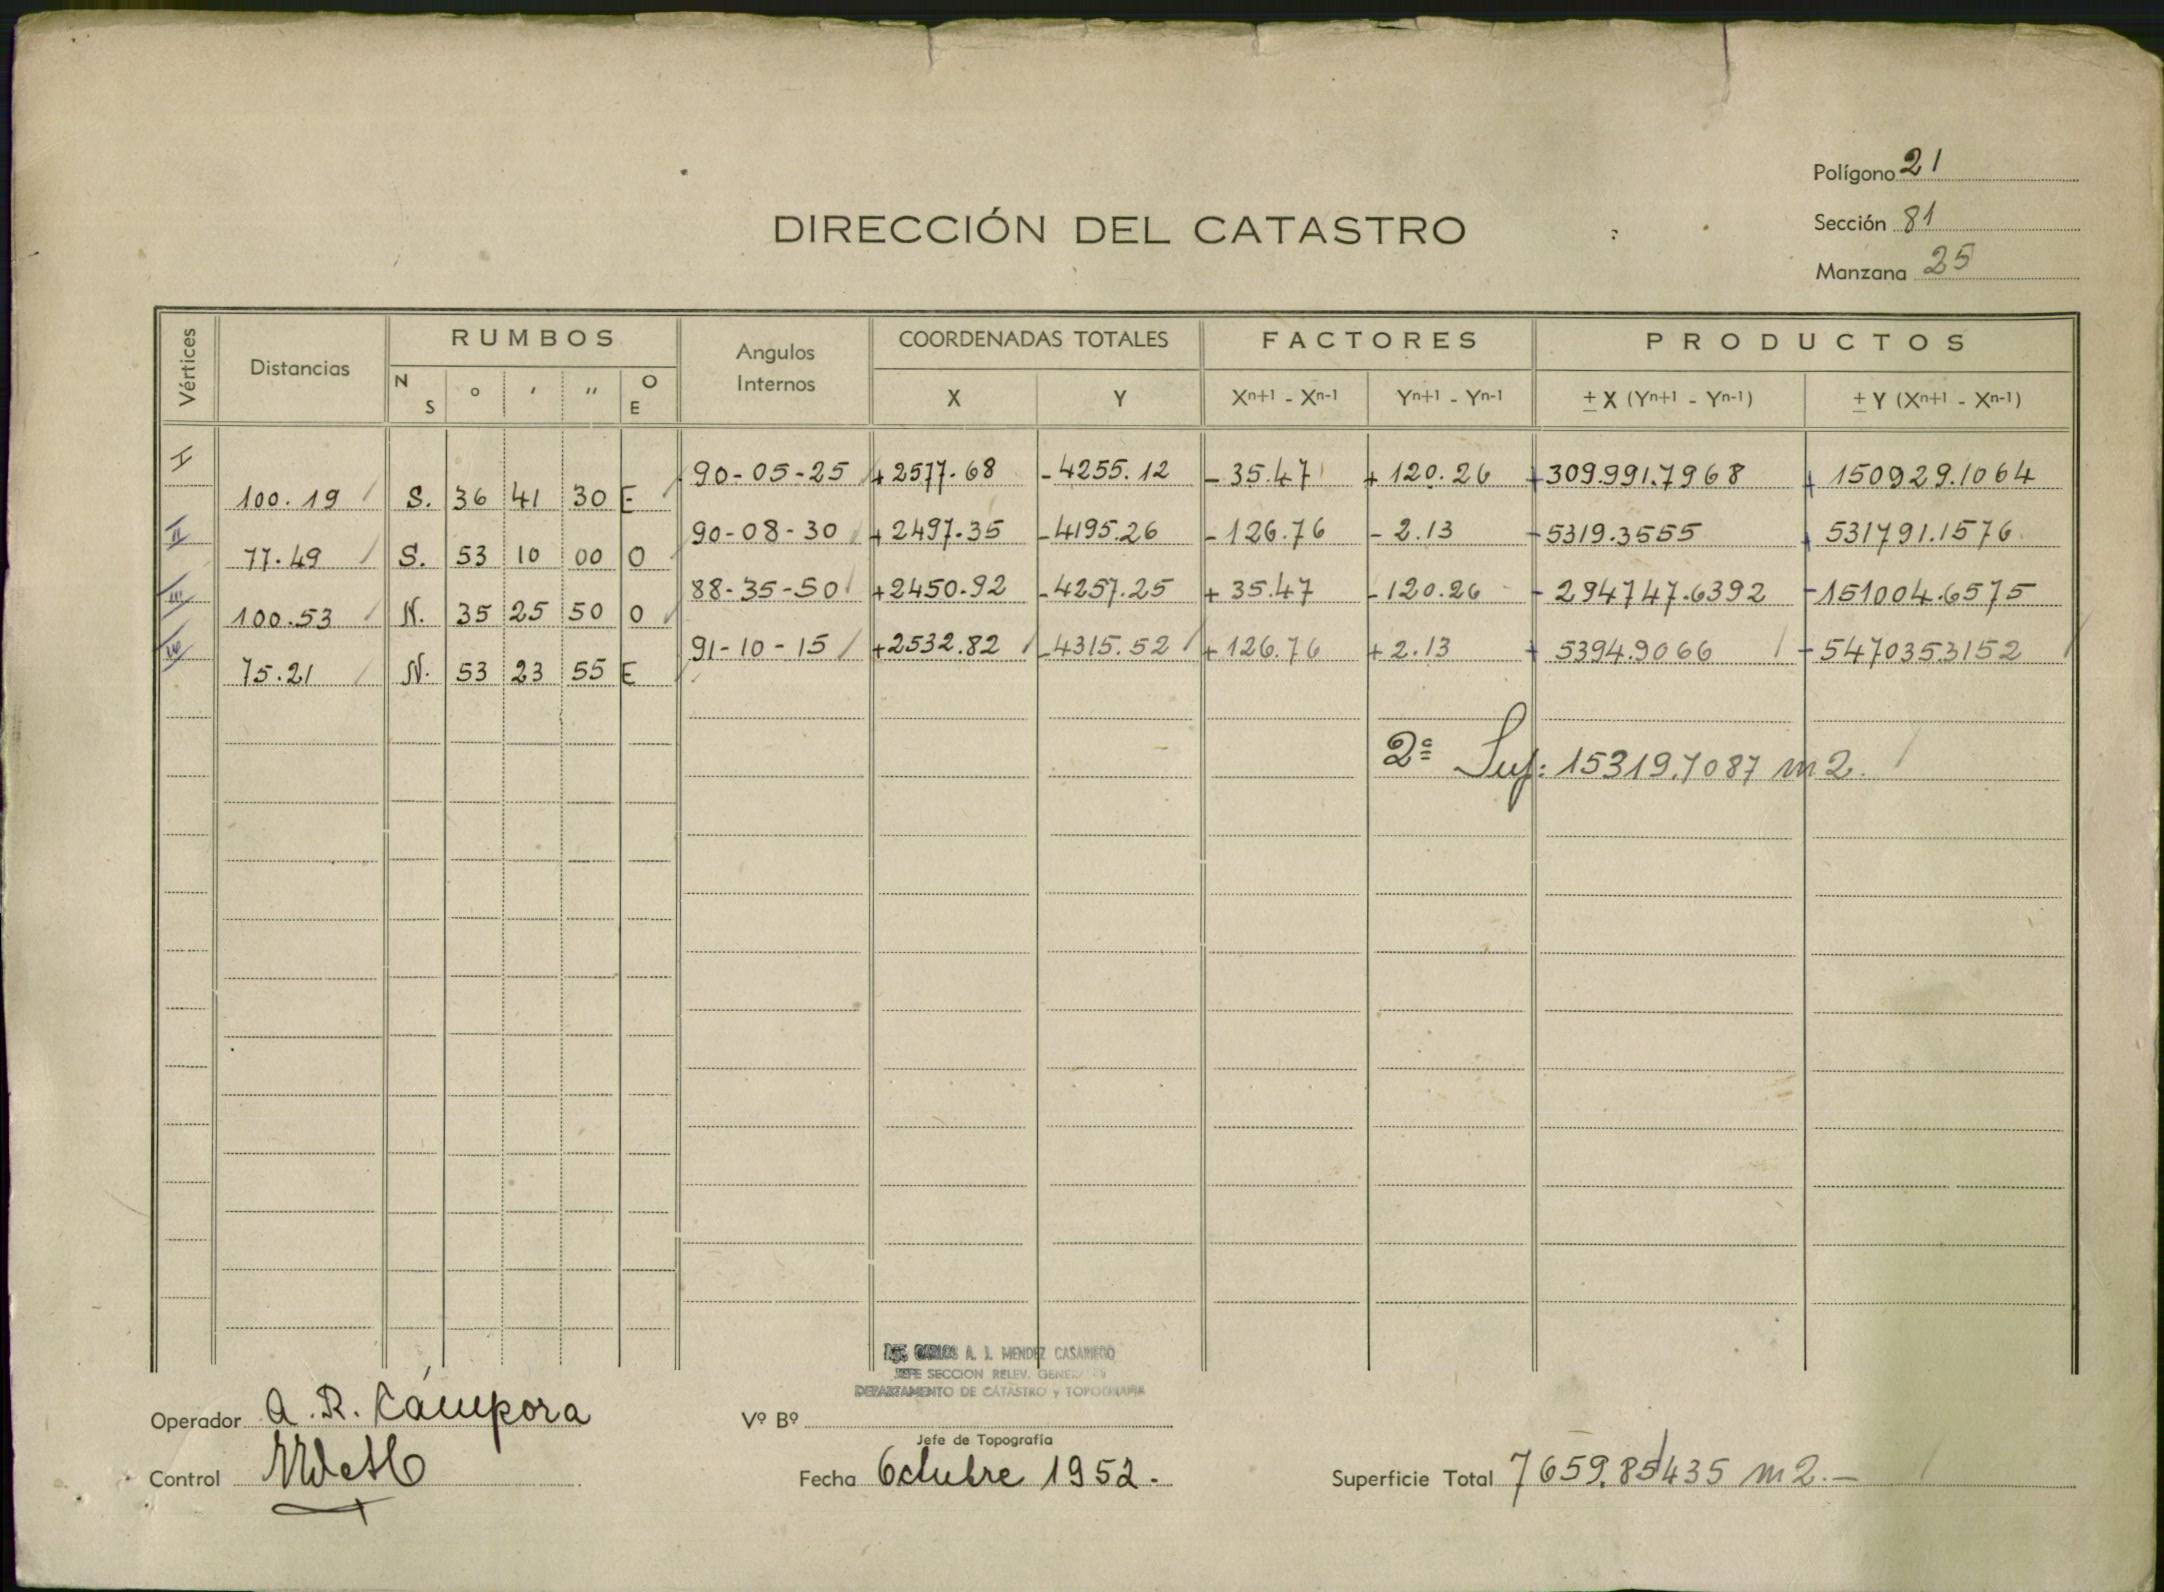 Polígono 21
DIRECCIÓN DEL CATASTRO
Sección 81
Manzana 25
Vértices Distancias RUMBOS Angulos Internos COORDENADAS TOTALES FACTORES PRODUCTOS
N S ° ' " O E X Y Xn+1 - Xn-1 Yn+1 - Yn-1 ± X (Yn+1 - Yn-1) ± Y (Xn+1 - Xn-1)
I 90-05-25 +2577.68 -4255.12 -35.47 +120.26 +309.991.7968 +150929.1064
100.19 S. 36 41 30 E
II 90-08-30 +2497.35 -4195.26 -126.76 -2.13 -5319.3555 +531791.1576
77.49 S. 53 10 00 O
III 88-35-50 +2450.92 -4257.25 +35.47 -120.26 -294747.6392 -151004.6575
100.53 N. 35 25 50 O
IV 91-10-15 +2532.82 -4315.52 +126.76 +2.13 +5394.9066 -547035.3152
75.21 N. 53 23 55 E
2ª Sup: 15319.7087 m2.
CARLOS A. J. MENDEZ CASARIEGO
JEFE SECCION RELEV.
DEPARTAMENTO DE CATASTRO y TOPOGRAFIA
Operador A. R. Cámpora
Vº Bº
Jefe de Topografía
Control
Fecha Octubre 1952.-
Superficie Total 7659.85435 m2.-